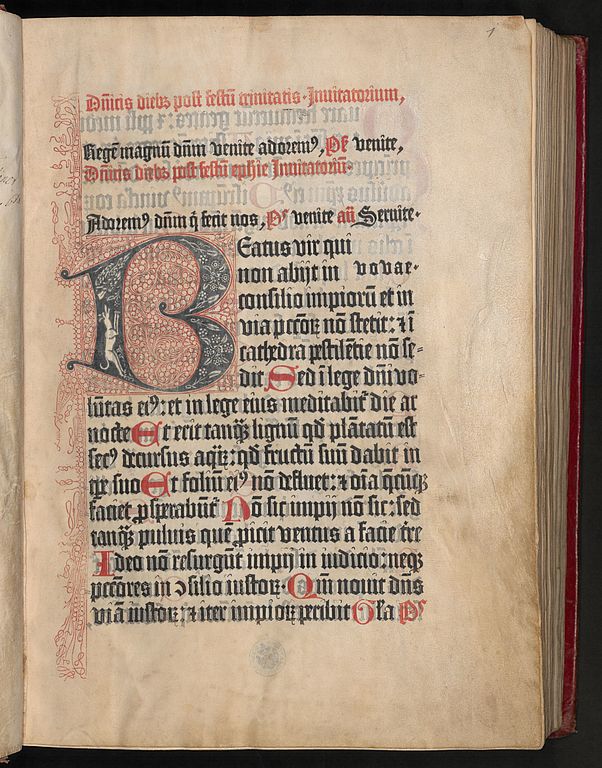 1
Dn̄icis diebꝫ post festū trinitatis · Inuitatorium,
Regem magnū dnm̄ venite adorem⁹, Ps̄ venite,
Dn̄icis diebꝫ post festū ephīe Inuitatoriū·
Adorem⁹ dnm̄ q̄ fecit nos, Ps̄ venite an̄ Seruite·
Beatus vir qui
non abijt in vovae·
consilio impiorū et in
via pctōꝝ nō stetit: ⁊ ī
cathedra pestilētie nō se⸗
dit Sed ī lege dn̄i vo⸗
lūtas ei⁹: et in lege eius meditabit̄ die ac
nocte Et erit tanqꝫ lignū qd̄ plātatū est
sec⁹ decursus aqꝝ: qd̄ fructū suū dabit in
tꝑe suo Et foliū ei⁹ nō defluet: ⁊ oīa q̄cūqꝫ
faciet ꝓsperabūt̄ Nō sic impij nō sic: sed
tanqꝫ puluis quē ꝓicit ventus a facie tre
Ideo nō resurgūt impij in iudicio: neqꝫ
pctōres in ↄ̄silio iustoꝝ· Qm̄ nouit dn̄s
viā iustoꝝ: ⁊ iter impioꝝ peribit Gl̄a Ps̄